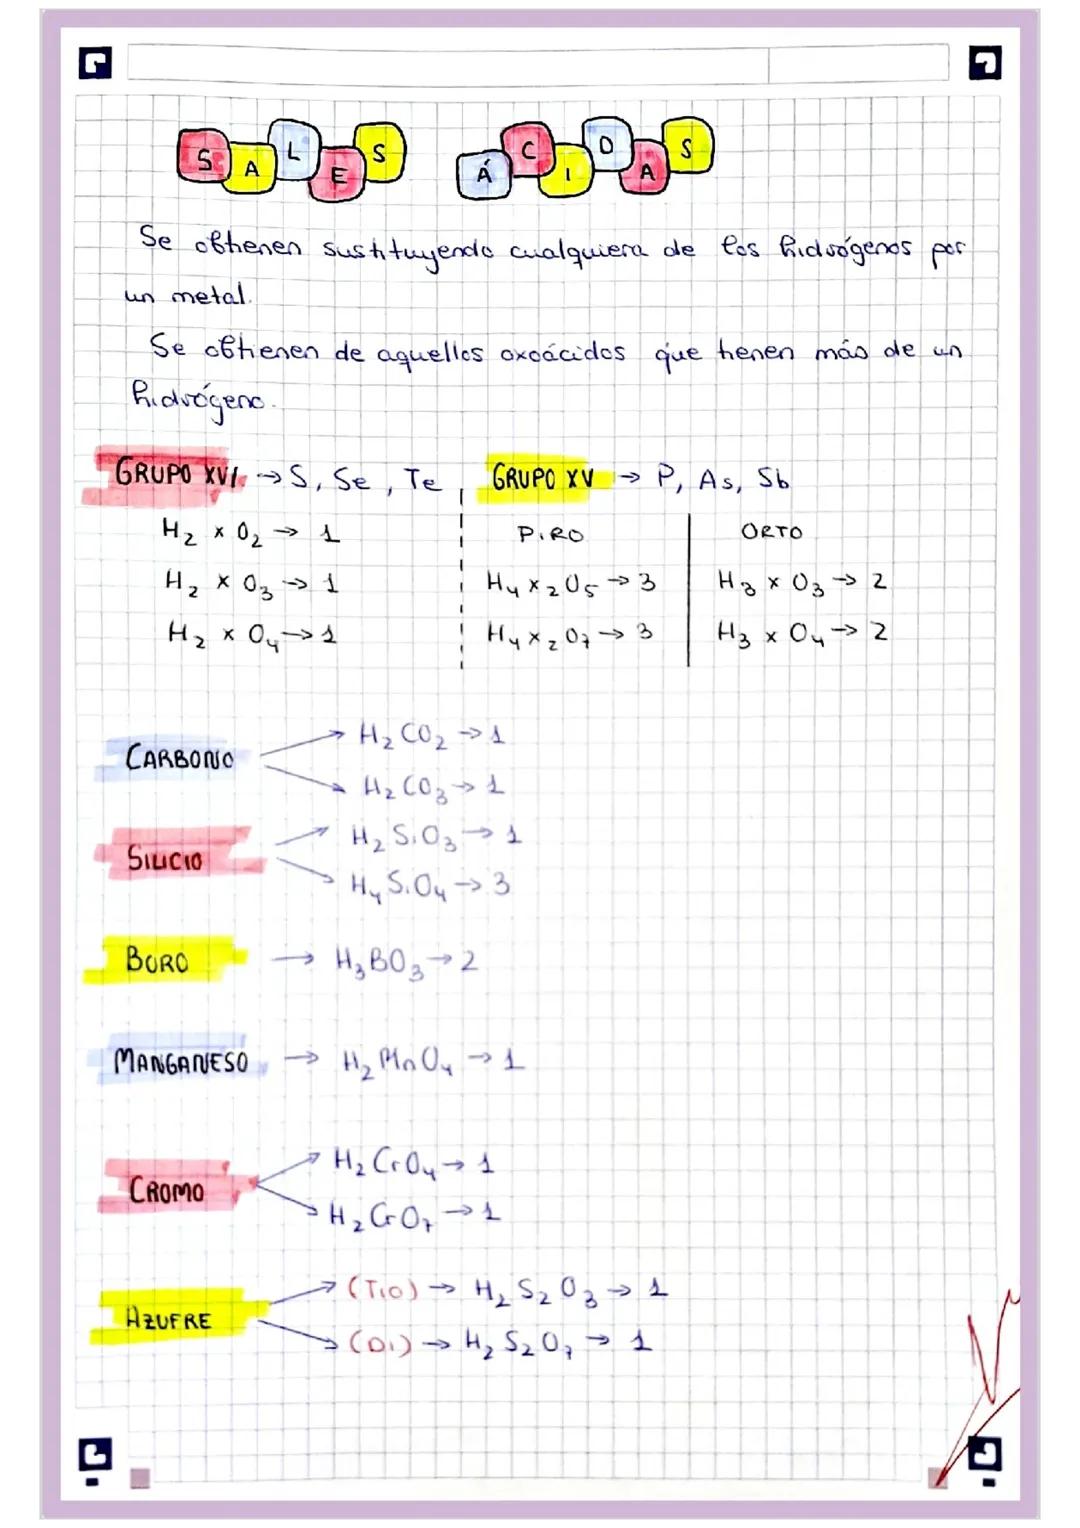 SALES ÁCIDAS
Se obtienen sustituyendo cualquiera de los hidrógenos por
un metal.
Se obtienen de aquellos oxoácidos que tienen más de un
hidrógeno.
GRUPO XVI → S, Se, Te
H₂ x O₂ → 1
H₂ x O₃ → 1
H₂ x O₄ → 1
GRUPO XV → P, As, Sb
PIRO
H₄ x₂ O₅ → 3
H₄ x₂ O₇ → 3
ORTO
H₃ x O₃ → 2
H₃ x O₄ → 2
CARBONO
H₂ CO₂ → 1
H₂ CO₃ → 1
SILICIO
H₂ SiO₃ → 1
H₄ SiO₄ → 3
BORO → H₃ BO₃ → 2
MANGANESO → H₂ MnO₄ → 1
CROMO
H₂ CrO₄ → 1
H₂ CrO₇ → 1
AZUFRE
(TIO) → H₂ S₂ O₃ → 1
(DI) → H₂ S₂ O₇ → 1